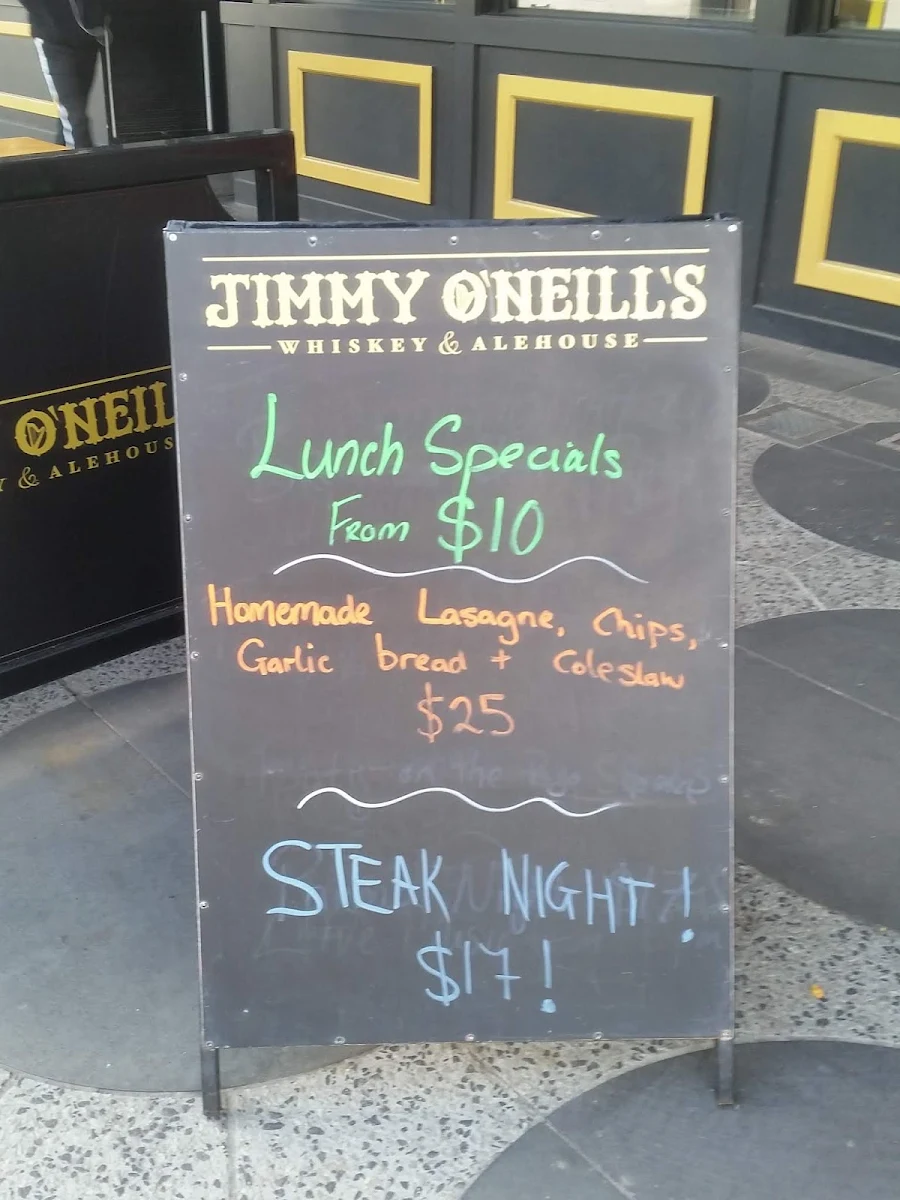 JIMMY O'NEILL'S
WHISKEY & ALEHOUSE
Lunch Specials
From $10
Homemade Lasagne, Chips,
Garlic bread + Coleslaw
$25
on the
STEAK NIGHT!
$17!
O'NEIL
Y & ALEHOUS